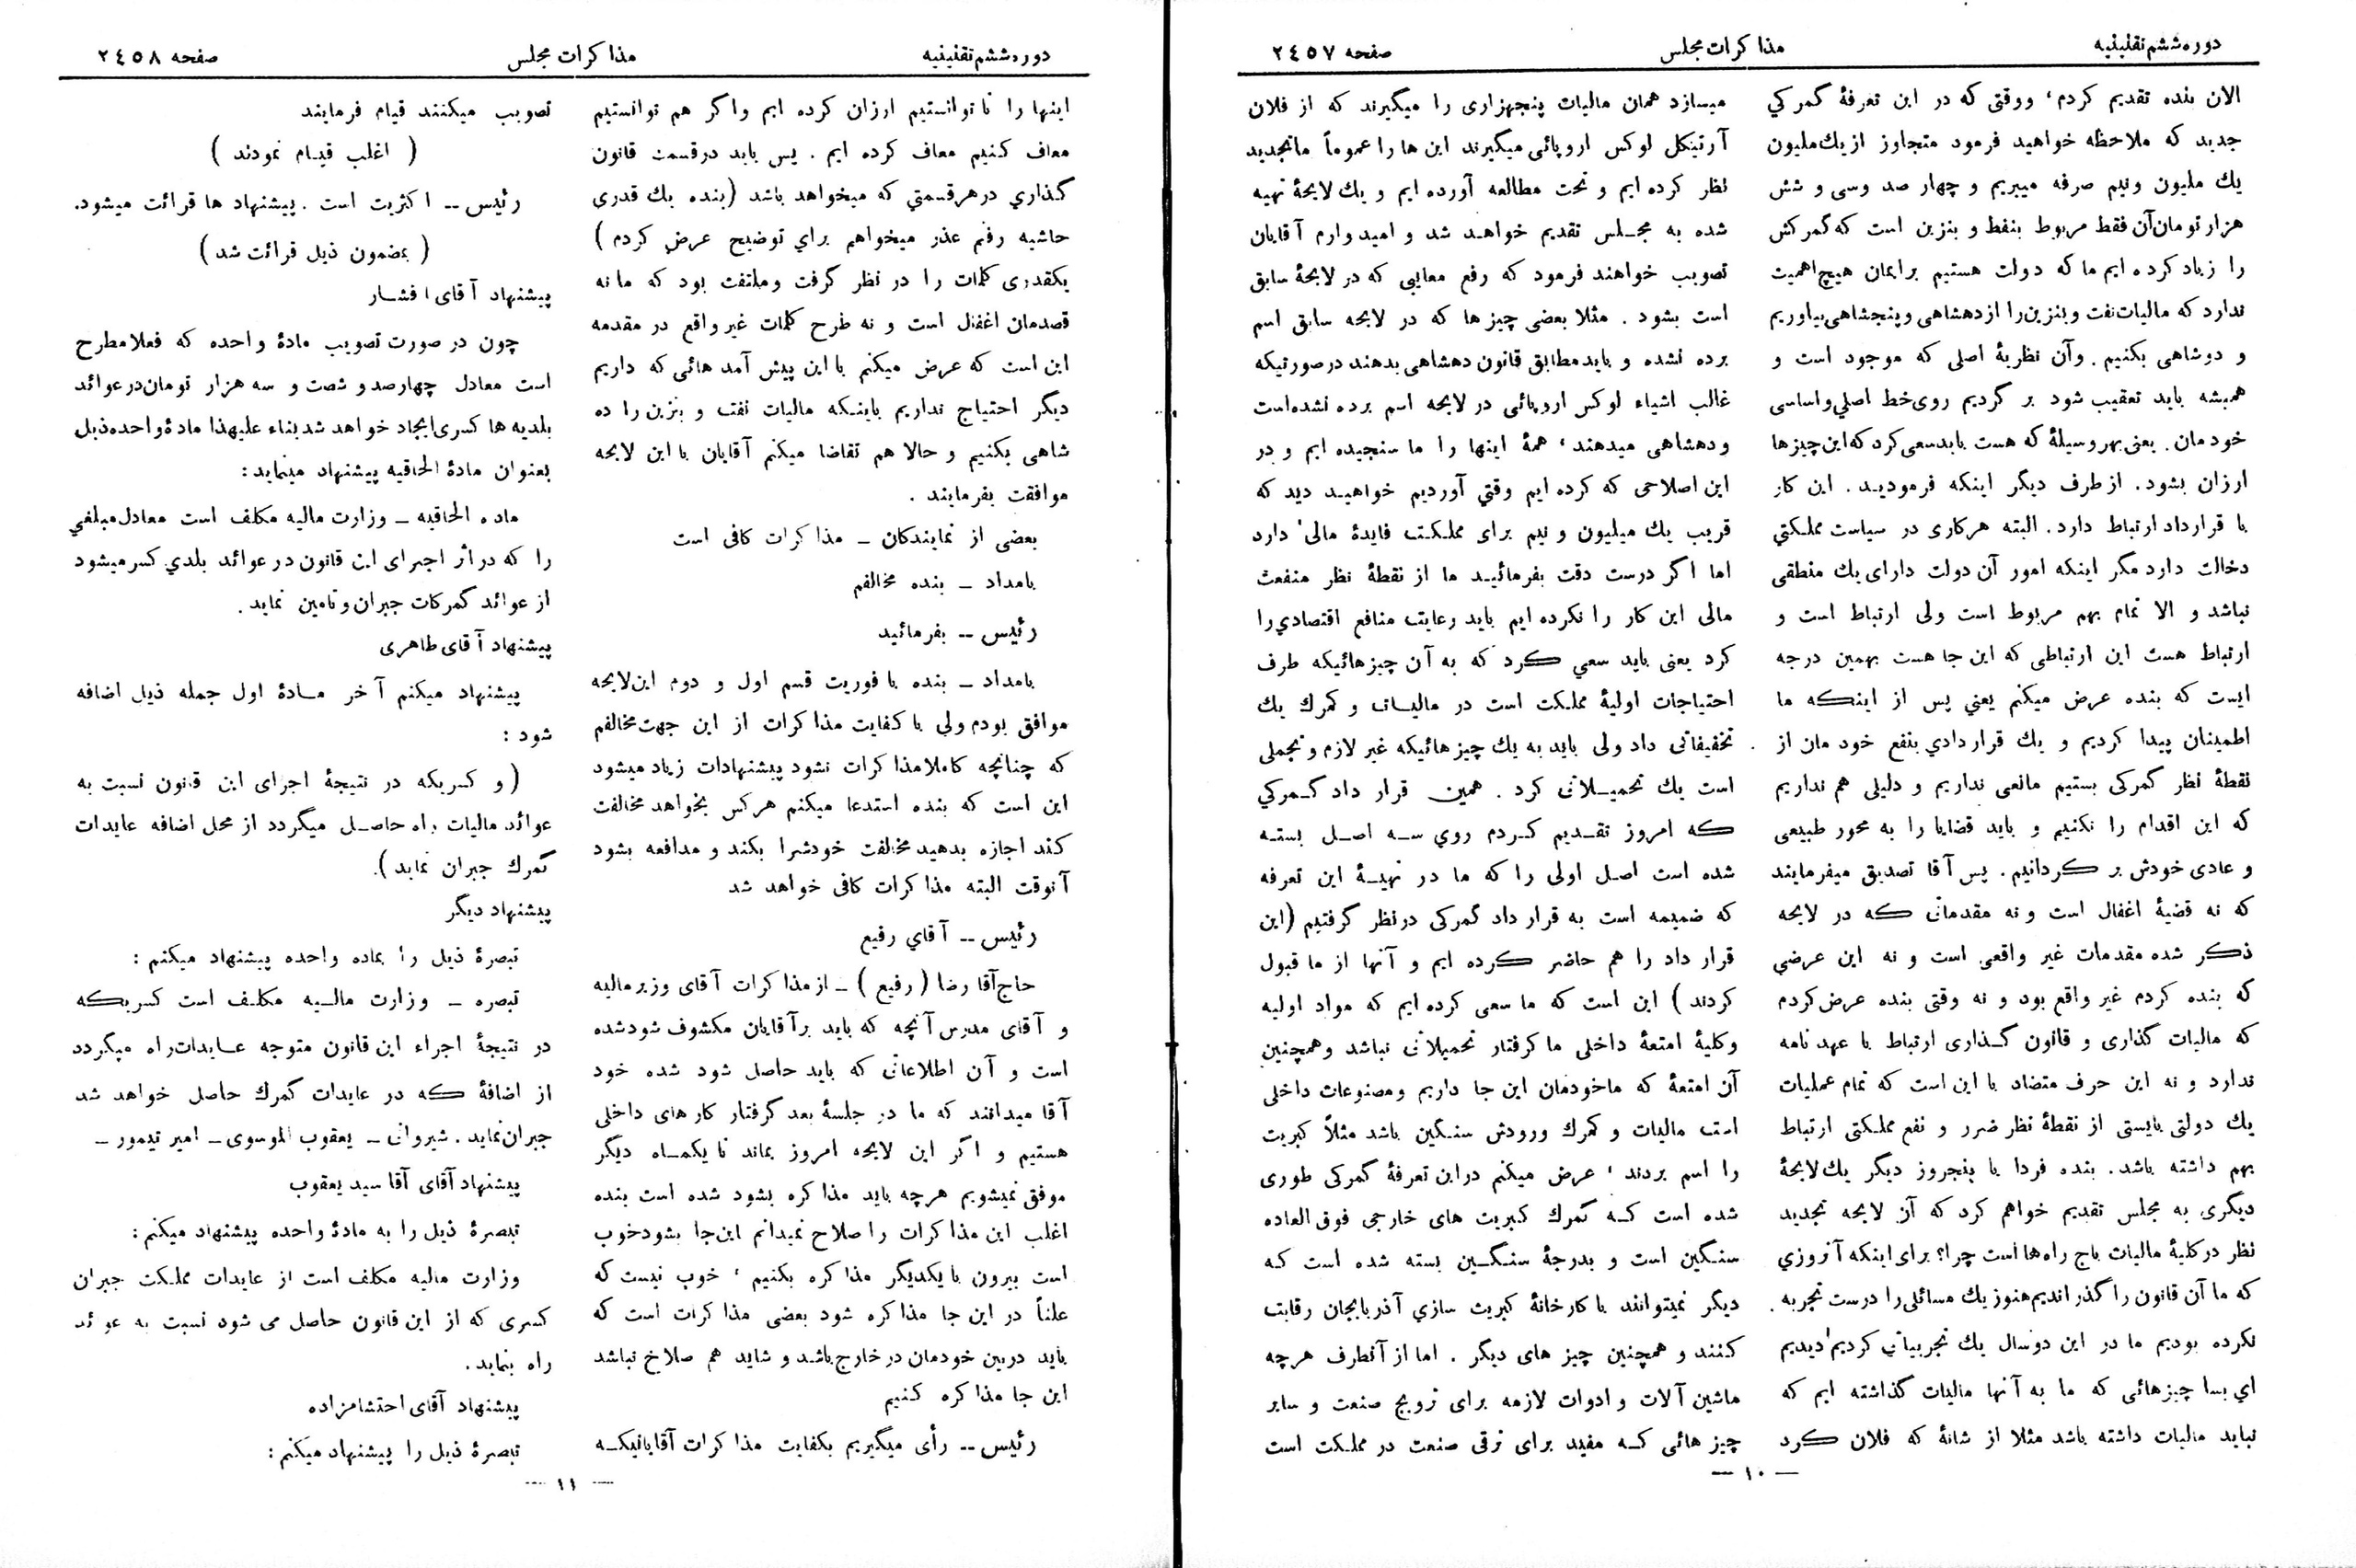 دوره ششم تقنینیه
مذاکرات مجلس
صفحه ۲٤۵۷
الان بنده تقدیم کردم، ووقتی که در این تعرفهٔ گمرکي
جدید که ملاحظه خواهید فرمود متجاوز از یك ملیون
یك ملیون ونیم صرفه میبریم و چهار صد وسی و شش
هزار تومان آن فقط مربوط بنفط و بنزین است که گمرکش
را زیاد کرده ایم ما که دولت هستیم برایمان هیچ اهمیت
ندارد که مالیات نفت و بنزین را از دهشاهی و پنجشاهی بیاوریم
و دوشاهی بکنیم. وآن نظریهٔ اصلی که موجود است و
همیشه باید تعقیب شود بر گردیم روی خط اصلي واساسی
خودمان. یعنی بهر وسیلهٔ که هست باید سعی کرد که این چیزها
ارزان بشود. از طرف دیگر اینکه فرمودید. این کار
با قرارداد ارتباط دارد. البته هرکاری در سیاست مملکتي
دخالت دارد مگر اینکه امور آن دولت دارای یك منطقی
نباشد و الا تمام بهم مربوط است ولی ارتباط است و
ارتباط هست این ارتباطی که این جا هست بهمین درجه
ایست که بنده عرض میکنم یعني پس از اینکه ما
اطمینان پیدا کردیم و یك قرار دادي بنفع خود مان از
نقطهٔ نظر گمرکی بستیم مانعی نداریم و دلیلی هم نداریم
که این اقدام را نکنیم و باید قضایا را به محور طبیعی
و عادی خودش بر گردانیم. پس آقا تصدیق میفرمایند
که نه قضیهٔ اغفال است و نه مقدماتی که در لایحه
ذکر شده مقدمات غیر واقعی است و نه این عرضي
که بنده کردم غیر واقع بود و نه وقتی بنده عرض کردم
که مالیات گذاری و قانون گذاری ارتباط با عهد نامه
ندارد و نه این حرف متضاد با این است که تمام عملیات
یك دولتی بایستی از نقطهٔ نظر ضرر و نفع مملکتی ارتباط
بهم داشته باشد. بنده فردا یا پنجروز دیگر یك لایحهٔ
دیگری به مجلس تقدیم خواهم کرد که آن لایحه تجدید
نظر در کلیهٔ مالیات باج راه ها است چرا؟ برای اینکه آنروزي
که ما آن قانون را گذراندیم هنوز یك مسائلی را درست تجربه
نکرده بودیم ما در این دوسال یك تجربیاتی کردیم دیدیم
اي بسا چیزهائی که ما به آنها مالیات گذاشته ایم که
نباید مالیات داشته باشد مثلا از شانهٔ که فلان کرد
میسازد همان مالیات پنجهزاری را میگیرند که از فلان
آرتیکل لوکس اروپائی میگیرند این ها را عموماً ماتجدید
نظر کرده ایم و تحت مطالعه آورده ایم و یك لایحهٔ تهیه
شده به مجلس تقدیم خواهد شد و امید وارم آقایان
تصویب خواهند فرمود که رفع معایبی که در لایحهٔ سابق
است بشود. مثلا بعضی چیز ها که در لایحه سابق اسم
برده نشده و باید مطابق قانون دهشاهی بدهند درصورتیکه
غالب اشیاء لوکس اروپائی در لایحه اسم برده نشده است
ودهشاهی میدهند، همهٔ اینها را ما سنجیده ایم و در
این اصلاحی که کرده ایم وقتي آوردیم خواهید دید که
قریب یك میلیون و نیم برای مملکت فایدهٔ مالی دارد
اما اگر درست دقت بفرمائید ما از نقطهٔ نظر منفعت
مالی این کار را نکرده ایم باید رعایت منافع اقتصادي را
کرد یعنی باید سعي کرد که به آن چیزهائیکه طرف
احتیاجات اولیهٔ مملکت است در مالیات و گمرك یك
تخفیفاتی داد ولی باید به یك چیزهائیکه غیر لازم و تجملی
است یك تحمیلاتی کرد. همین قرار داد گمرکي
که امروز تقدیم کردم روي سه اصل بسته
شده است اصل اولی را که ما در تهیهٔ این تعرفه
که ضمیمه است به قرار داد گمرکی درنظر گرفتیم (این
قرار داد را هم حاضر کرده ایم و آنها از ما قبول
کردند) این است که ما سعی کرده ایم که مواد اولیه
وکلیهٔ امتعهٔ داخلی ما گرفتار تحمیلاتی نباشد وهمچنین
آن امتعهٔ که ماخودمان این جا داریم ومصنوعات داخلی
است مالیات و گمرك ورودش سنگین باشد مثلاً کبریت
را اسم بردند، عرض میکنم در این تعرفهٔ گمرکی طوری
شده است که گمرك کبریت های خارجی فوق العاده
سنگین است و بدرجهٔ سنگین بسته شده است که
دیگر نمیتوانند با کارخانهٔ کبریت سازي آذربایجان رقابت
کنند و همچنین چیز های دیگر. اما از آنطرف هرچه
ماشین آلات و ادوات لازمه برای ترویج صنعت و سایر
چیز هائی که مفید برای ترقی صنعت در مملکت است
— ۱۰ —
دوره ششم تقنینیه
مذاکرات مجلس
صفحه ۲٤۵۸
اینها را تا توانستیم ارزان کرده ایم واگر هم توانستیم
معاف کنیم معاف کرده ایم. پس باید درقسمت قانون
گذاري درهرقسمتي که میخواهد باشد (بنده یك قدری
حاشیه رفتم عذر میخواهم براي توضیح عرض کردم)
یکقدری کلمات را در نظر گرفت وملتفت بود که ما نه
قصدمان اغفال است و نه طرح کلمات غیر واقع در مقدمه
این است که عرض میکنم با این پیش آمد هائی که داریم
دیگر احتیاج نداریم باینکه مالیات نفت و بنزین را ده
شاهی بکنیم و حالا هم تقاضا میکنم آقایان با این لایحه
موافقت بفرمایند.
بعضی از نمایندکان ـ مذاکرات کافی است
بامداد ـ بنده مخالفم
رئیس -- بفرمائید
بامداد ـ بنده با فوریت قسم اول و دوم این لایحه
موافق بودم ولی با کفایت مذاکرات از این جهت مخالفم
که چنانچه کاملا مذاکرات نشود پیشنهادات زیاد میشود
این است که بنده استدعا میکنم هرکس بخواهد مخالفت
کند اجازه بدهید مخالفت خودشرا بکند و مدافعه بشود
آنوقت البته مذاکرات کافی خواهد شد
رئیس -- آقاي رفیع
حاج آقا رضا (رفیع) ـ از مذاکرات آقای وزیر مالیه
و آقای مدرس آنچه که باید برآقایان مکشوف شود شده
است و آن اطلاعاتی که باید حاصل شود شده خود
آقا میدانند که ما در جلسهٔ بعد گرفتار کار های داخلی
هستیم و اگر این لایحه امروز بماند تا یکماه دیگر
موفق نمیشویم هرچه باید مذاکره بشود شده است بنده
اغلب این مذاکرات را صلاح نمیدانم این جا بشود خوب
است بیرون با یکدیگر مذاکره بکنیم، خوب نیست که
علناً در این جا مذاکره شود بعضی مذاکرات است که
باید دربین خودمان در خارج باشد و شاید هم صلاح نباشد
این جا مذاکره کنیم
رئیس -- رأی میگیریم بکفایت مذاکرات آقایانیکه
تصویب میکنند قیام فرمایند
( اغلب قیام نمودند )
رئیس -- اکثریت است. پیشنهاد ها قرائت میشود.
( بمضمون ذیل قرائت شد )
پیشنهاد آقای افشار
چون در صورت تصویب مادهٔ واحده که فعلا مطرح
است معادل چهارصد و شصت و سه هزار تومان در عوائد
بلدیه ها کسری ایجاد خواهد شد بناء علیهذا مادهٔ واحده ذیل
بعنوان مادهٔ الحاقیه پیشنهاد مینماید:
ماده الحاقیه ـ وزارت مالیه مکلف است معادل مبلغي
را که در اثر اجرای این قانون در عوائد بلدي کسر میشود
از عوائد گمرکات جبران و تامین نماید.
پیشنهاد آقای طاهری
پیشنهاد میکنم آخر مادهٔ اول جمله ذیل اضافه
شود:
(و کسریکه در نتیجهٔ اجرای این قانون نسبت به
عوائد مالیات راه حاصل میگردد از محل اضافه عایدات
گمرك جبران نماید).
پیشنهاد دیگر
تبصرهٔ ذیل را بماده واحده پیشنهاد میکنم:
تبصره ـ وزارت مالیه مکلف است کسریکه
در نتیجهٔ اجراء این قانون متوجه عایدات راه میگردد
از اضافهٔ که در عایدات گمرك حاصل خواهد شد
جبران نماید. شیروانی ـ یعقوب الموسوی ـ امیر تیمور ـ
پیشنهاد آقای آقا سید یعقوب
تبصرهٔ ذیل را به مادهٔ واحده پیشنهاد میکنم:
وزارت مالیه مکلف است از عایدات مملکت جبران
کسری که از این قانون حاصل می شود نسبت به عوائد
راه بنماید.
پیشنهاد آقای احتشامزاده
تبصرهٔ ذیل را پیشنهاد میکنم:
— ۱۱ —